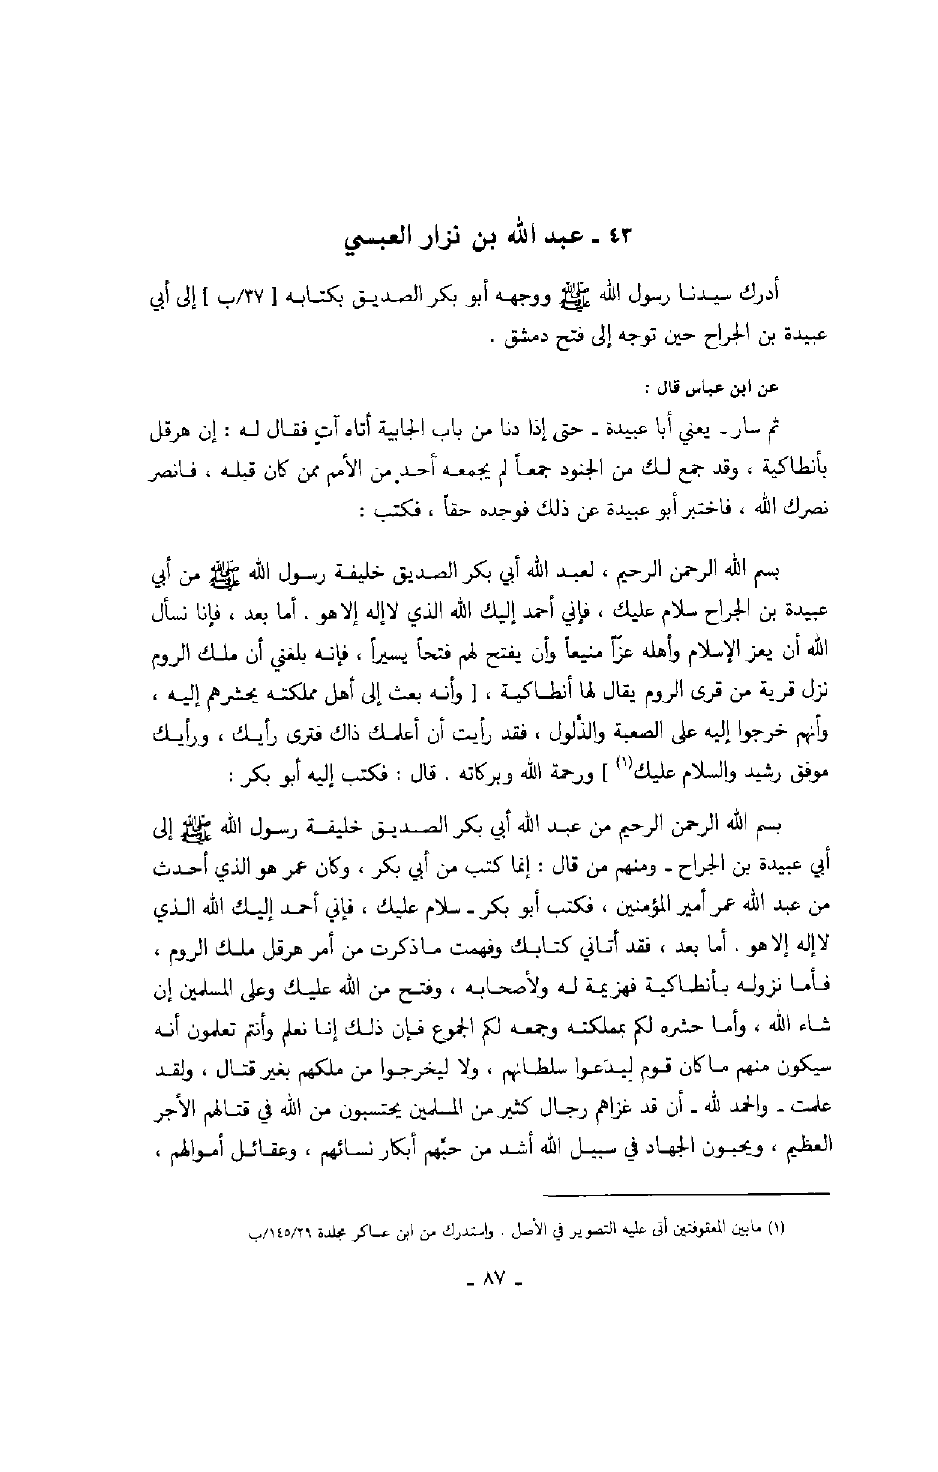 ٤٣ ـ عبد الله بن نزار العبسي
أدرك سيدنا رسول الله ﷺ ووجهه أبو بكر الصديق بكتابه [ ٣٧/ب ] إلى أبي
عبيدة بن الجراح حين توجه إلى فتح دمشق .
عن ابن عباس قال :
ثم سار ـ يعني أبا عبيدة ـ حتى إذا دنا من باب الجابية أتاه آتٍ فقال له : إن هرقل
بأنطاكية ، وقد جمع لك من الجنود جمعاً لم يجمعه أحد من الأمم ممن كان قبله ، فانصر
نصرك الله ، فاختبر أبو عبيدة عن ذلك فوجده حقاً ، فكتب :
بسم الله الرحمن الرحيم ، لعبد الله أبي بكر الصديق خليفة رسول الله ﷺ من أبي
عبيدة بن الجراح سلام عليك ، فإني أحمد إليك الله الذي لاإله إلاهو . أما بعد ، فإنا نسأل
الله أن يعز الإسلام وأهله عزّاً منيعاً وأن يفتح لهم فتحاً يسيراً ، فإنه بلغني أن ملك الروم
نزل قرية من قرى الروم يقال لها أنطاكية ، [ وأنه بعث إلى أهل مملكته يحشرهم إليه ،
وأنهم خرجوا إليه على الصعبة والذَّلول ، فقد رأيت أن أعلمك ذاك فترى رأيك ، ورأيك
موفق رشيد والسلام عليك(١) ] ورحمة الله وبركاته . قال : فكتب إليه أبو بكر :
بسم الله الرحمن الرحيم من عبد الله أبي بكر الصديق خليفة رسول الله ﷺ إلى
أبي عبيدة بن الجراح ـ ومنهم من قال : إنما كتب من أبي بكر ، وكان عمر هو الذي أحدث
من عبد الله عمر أمير المؤمنين ، فكتب أبو بكر ـ سلام عليك ، فإني أحمد إليك الله الذي
لاإله إلاهو . أما بعد ، فقد أتاني كتابك وفهمت ماذكرت من أمر هرقل ملك الروم ،
فأما نزوله بأنطاكية فهزيمة له ولأصحابه ، وفتح من الله عليك وعلى المسلمين إن
شاء الله ، وأما حشره لكم بمملكته وجمعه لكم الجموع فإن ذلك إنا نعلم وأنتم تعلمون أنه
سيكون منهم ماكان قوم ليدَعوا سلطانهم ، ولا ليخرجوا من ملكهم بغير قتال ، ولقد
علمت ـ والحمد لله ـ أن قد غزاهم رجال كثير من المسلمين يحتسبون من الله في قتالهم الأجر
العظيم ، ويحبون الجهاد في سبيل الله أشد من حبّهم أبكار نسائهم ، وعقائل أموالهم ،
(١) مابين المعقوفتين أتى عليه التصوير في الأصل . واستدرك من ابن عساكر مجلدة ١٤٥/٢٩/ب
ـ ٨٧ ـ